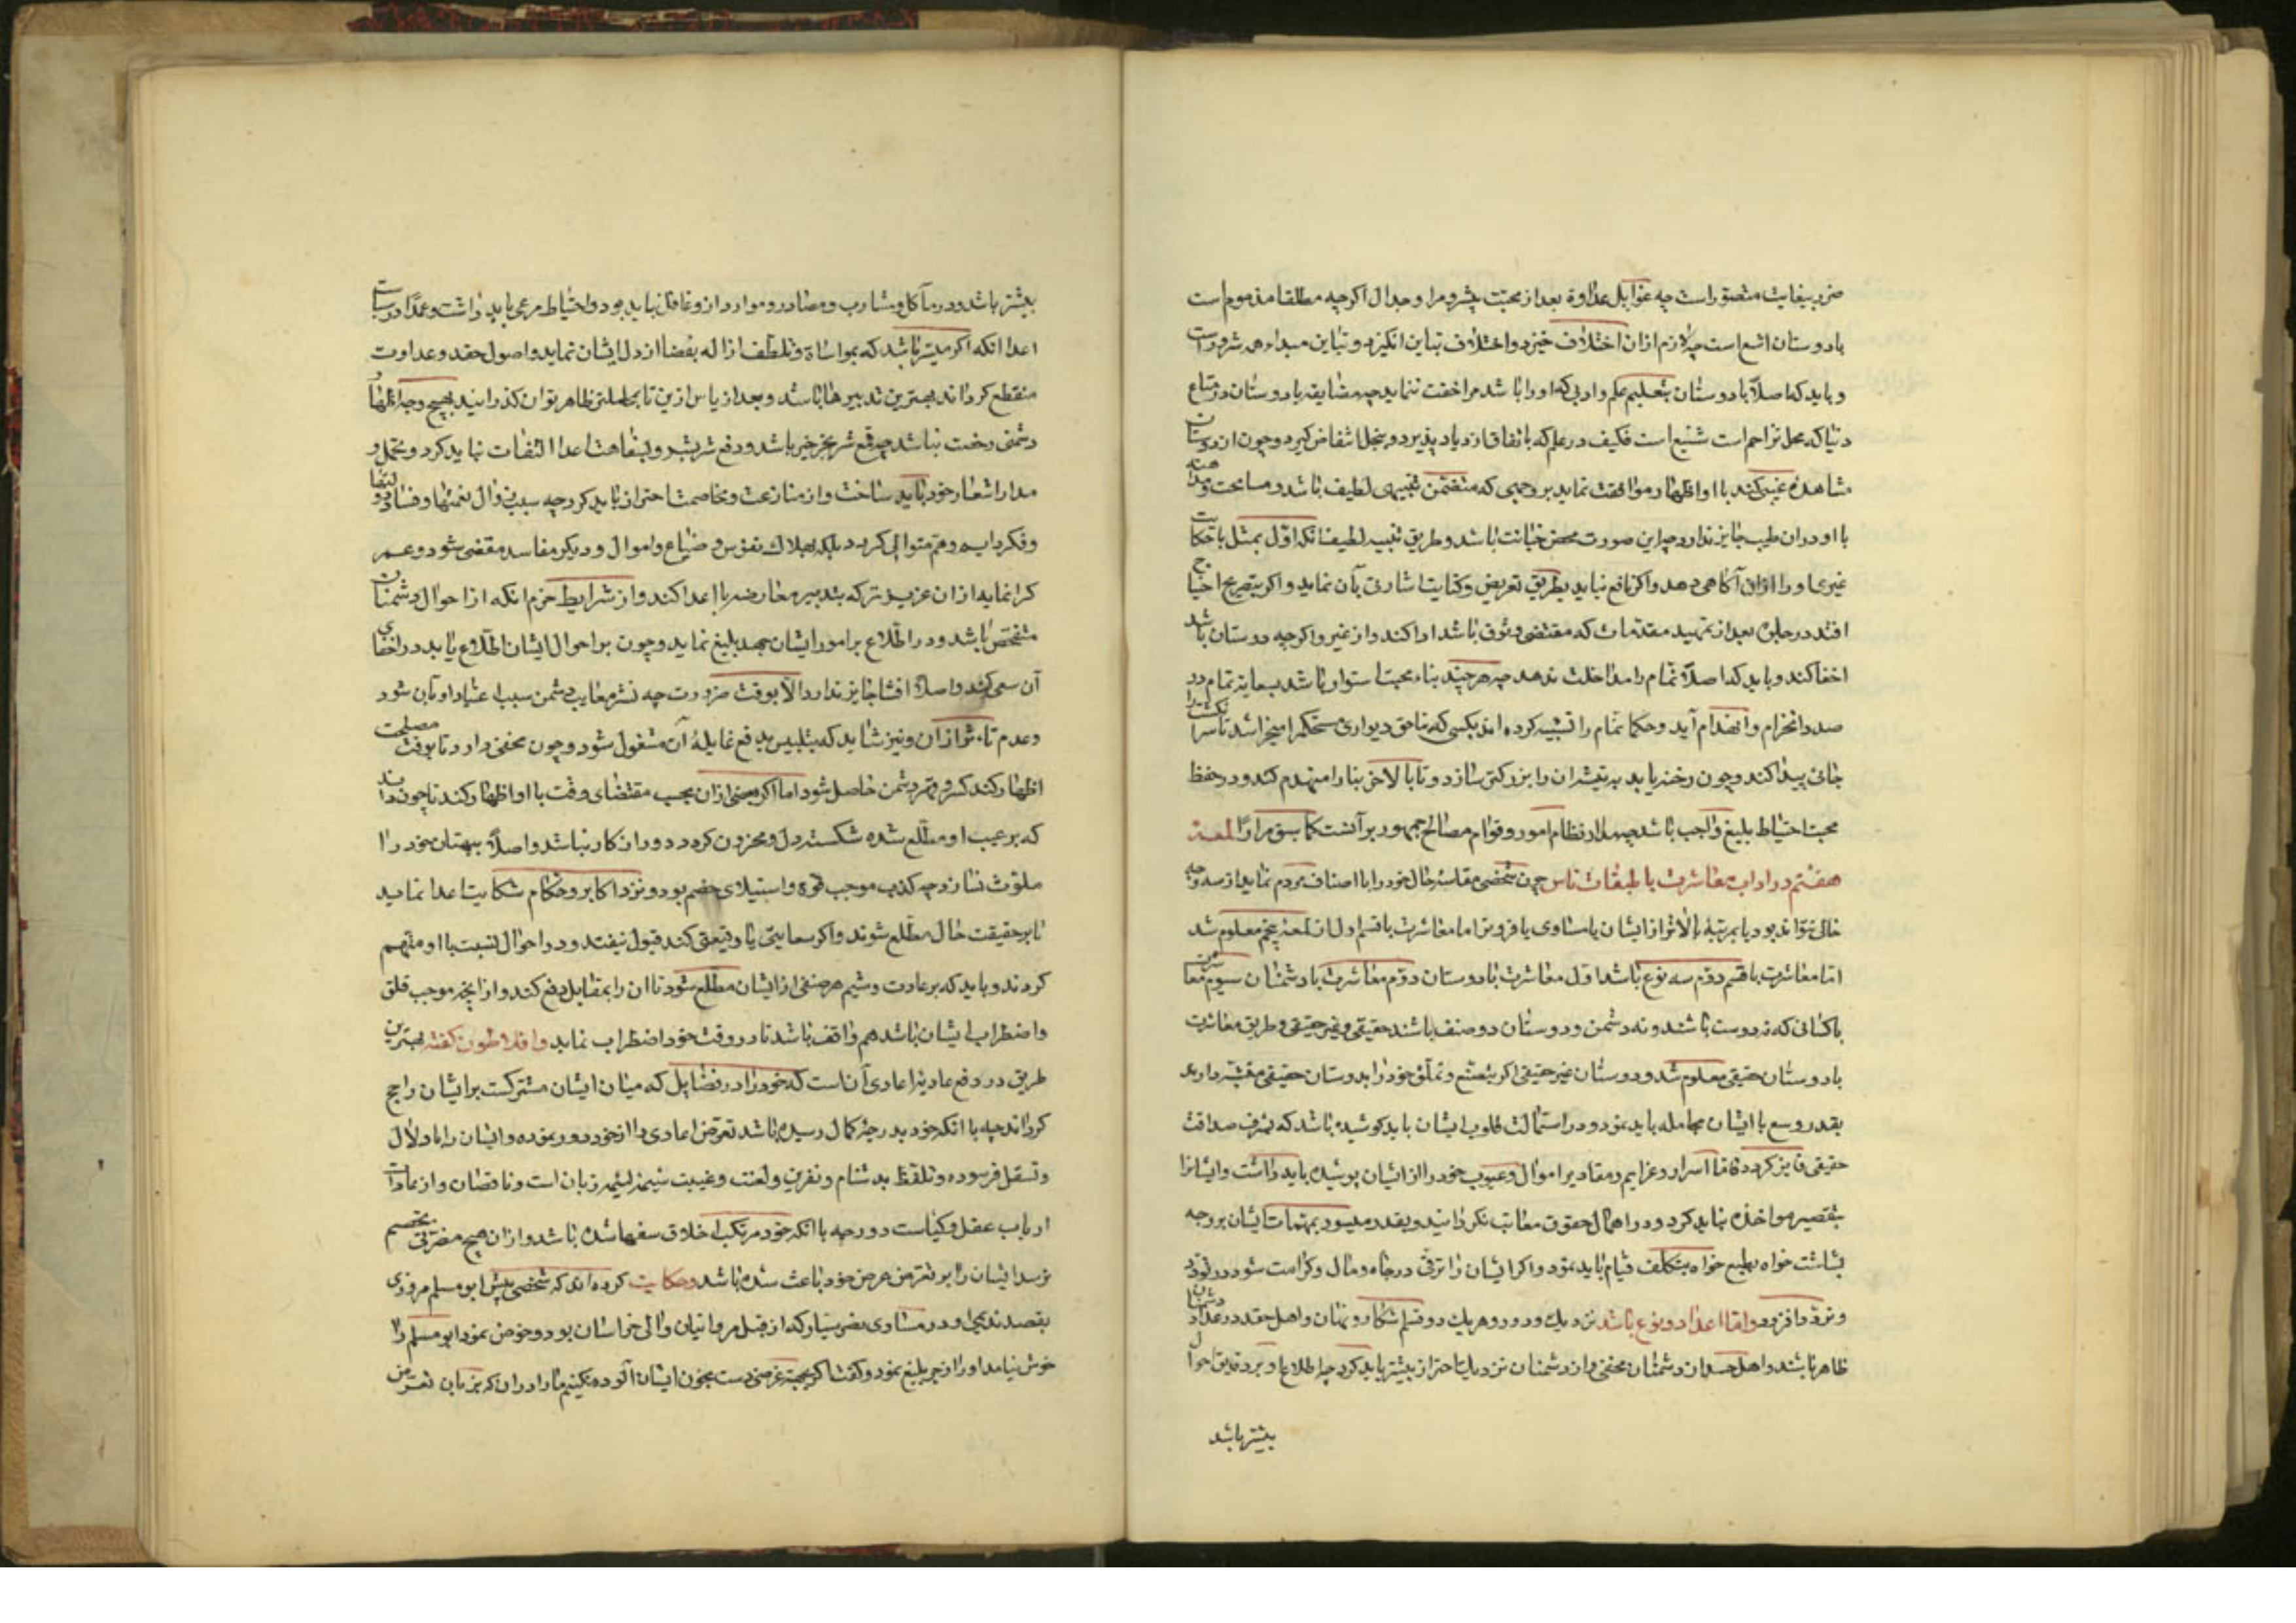 ضرر بیغایت متصور است چه غوایل عداوة بعد از محبت بیشتر و مرا و جدال اکرچه مطلقا مذموم است
با دوستان اشنع است چه لازم ازان اختلاف خیزد و اختلاف تباین انکیزد و تباین مبداء همه شرور است
و باید که اصلا با دوستان بتعلیم علم و ادبی که او را باشد مراخفت ننماید چه مضایقه با دوستان در متاع
دنیا که محل تزاحم است شنیع است فکیف در علم که بانفاق ازدیاد پذیرد و ببخل انتقاض کیرد و چون از دوستان
مشاهده عیبی کند با او اظهار موافقت نماید بر وجهی که متضمن تنبیهی لطیف باشد و مسامحت و مداهنه
با او دران طیب جایز ندارد چه این صورت محض خیانت باشد و طریق تنبیه لطیف انکه اول بمثل یا حکایت
غیری او را ازان آکاهی دهد و اکر نافع نیاید بطریق تعریض و کنایت اشارتی بآن نماید و اکر بتصریح احتیاج
افتد در خلوة بعد از تمهید مقدمات که مقتضی وثوق باشد ادا کند و از غیر و اکرچه دوستان باشد
اخفا کند و باید که اصلا نمام را مداخلت ندهد چه هرچند بناء محبت استوار باشد بسعایة نمام در
صدد انخرام و انهدام آید و حکما نمام را تشبیه کرده اند بکسی که بناخق دیواری مستحکم را میخراشد تا سر انکشت را
جائی پیدا کند و چون رخنه یابد به تیشه ان را بزرکتر سازد و تا بالاخر بنا را منهدم کند و در حفظ
محبت احتیاط بلیغ واجب باشد چه مدار نظام امور و قوام مصالح جمهور بر آنست کما سبق مرارا لمعهٔ
هفتم در اداب معاشرت با طبقات ناس چون شخصی مقایسه حال خود را با اصناف مردم نماید از سه وجه
خالی نتواند بود یا بمرتبهٔ بالاتر از ایشان یا مساوی یا فروتر اما معاشرت با قسم اول از لمعهٔ پنجم معلوم شد
امّا معاشرت با قسم دوم سه نوع باشد اول معاشرت با دوستان دوم معاشرت با دشمنان سیوم معاشرت
با کسانی که نه دوست باشند و نه دشمن و دوستان دو صنف باشند حقیقی و غیر حقیقی و طریق معاشرت
با دوستان حقیقی معلوم شد و دوستان غیر حقیقی اکر بتصنع و تملق خود را بدوستان حقیقی متشبه دارند
بقدر وسع با ایشان مجامله باید نمود و در استمالت قلوب ایشان باید کوشیده باشد که بشرف صداقت
حقیقی فایز کردد فاما اسرار و عزایم و مقادیر اموال و عیوب خود را از ایشان پوشیده باید داشت و ایشانرا
بتقصیر مواخذه نباید کرد و در اهمال حقوق معاتب نکردانید و بقدر میسور بمهمات ایشان بر وجه
بشاشت خواه بطبع خواه بتکلف قیام باید نمود و اکر ایشان را ترقی در جاه و مال و کرامت شود در تودد
و تردد افزود و اما اعدا دو نوع باشد نزدیک و دور و هر یک دو قسم شکار و نهان و اهل حقد در عداد دشمنان
ظاهر باشند و اهل حسد از دشمنان مخفی و از دشمنان نزدیک احتراز بیشتر باید کرد چه اطلاع او بر دقایق احوال
بیشتر باشد
بیشتر باشد و در مآکل و مشارب و مصادر و موارد از و غافل نباید بود و احتیاط مرعی باید داشت و عمده در سیاست
اعدا انکه اکر میسر باشد که بمواساة و تلطف ازاله بغضا از دل ایشان نماید و اصول حقد و عداوت
منقطع کرداند بهترین تدبیرها باشد و بعد از یاس ازین تا بمجاملتی ظاهر توان کذرانید بهیچ وجه اظهار
دشمنی رخصت نباشد چه قمع شر بخیر خیر باشد و دفع شر بشر و بسفاهت اعدا التفات نباید کرد و تحمل و
مدارا شعار خود باید ساخت و از منازعت و مخاصمت احتراز باید کرد چه سبب زوال نعمتها و فساد دولتها
و فکر دایم و هم متوالی کردد بلکه بهلاک نفوس و ضیاع و اموال و دیکر مفاسد مفضی شود و عمر
کرانمایه ازان عزیزتر که بتدبیر معارضه با اعدا کند و از شرایط حزم انکه از احوال دشمنان
متفحص باشد و در اطلاع بر امور ایشان جهد بلیغ نماید و چون بر احوال ایشان اطلاع یابد در اخفای
آن سعی کند و اصلا افشا جایز ندارد الا بوقت ضرورت چه نشر معایب دشمن سبب اعتیاد او بآن شود
و عدم تاءثر ازان و نیز شاید که بتلبیس بدفع غایلهٔ آن مشغول شود و چون مخفی دارد تا بوقت مصلحت
اظهار کند کسر و قهر دشمن حاصل شود اما اکر بعضی ازان بحسب مقتضای وقت با او اظهار کند تا چون داند
که بر عیب او مطلع شده شکسته دل و محزون کردد دور از کار نباشد و اصلا ببهتان خود را
ملوث نسازد چه کذب موجب قوة و استیلای خصم بود و نزد اکابر و حکام شکایت اعدا نماید
تا بر حقیقت حال مطلع شوند و اکر سعایتی یا وقیعتی کند قبول نیفتد و در احوال نسبت با او متهم
کردند و باید که بر عادت و شیم هر صنفی از ایشان مطلع شود تا ان را بمقابل دفع کند و از انچه موجب قلق
و اضطراب ایشان باشد هم واقف باشد تا در وقت خود اضطراب نماید و افلاطون کفته بهترین
طریق در دفع عادیهٔ اعادی آن است که خود را در فضایل که میان ایشان مشترکست بر ایشان راجح
کرداند چه با انکه خود بدرجهٔ کمال رسیده باشد تعرض اعادی را از خود دور نموده و ایشان را با دلال
و تسفل فرسوده و تلفظ بدشنام و نفرین و لعنت و غیبت شیمهٔ لئیمهٔ زنان است و ناقصان و از عادات
ارباب عقل و کیاست دور چه با انکه خود مرتکب اخلاق سفها شده باشد و ازان هیچ مضرتی بخصم
نرسد ایشان را بر تعرض عرض خود باعث شده باشد و حکایت کرده اند که شخصی پیش ابو مسلم مروزی
بقصد ندیمی او در مساوی نصر سیار که از قبل مروانیان والی خراسان بود و خوض نمود ابو مسلم را
خوش نیامد او را زجر بلیغ نمود و کفت اکر بجهة غرضی دست بخون ایشان آلوده میکنیم ما را دران که بزبان تعرض